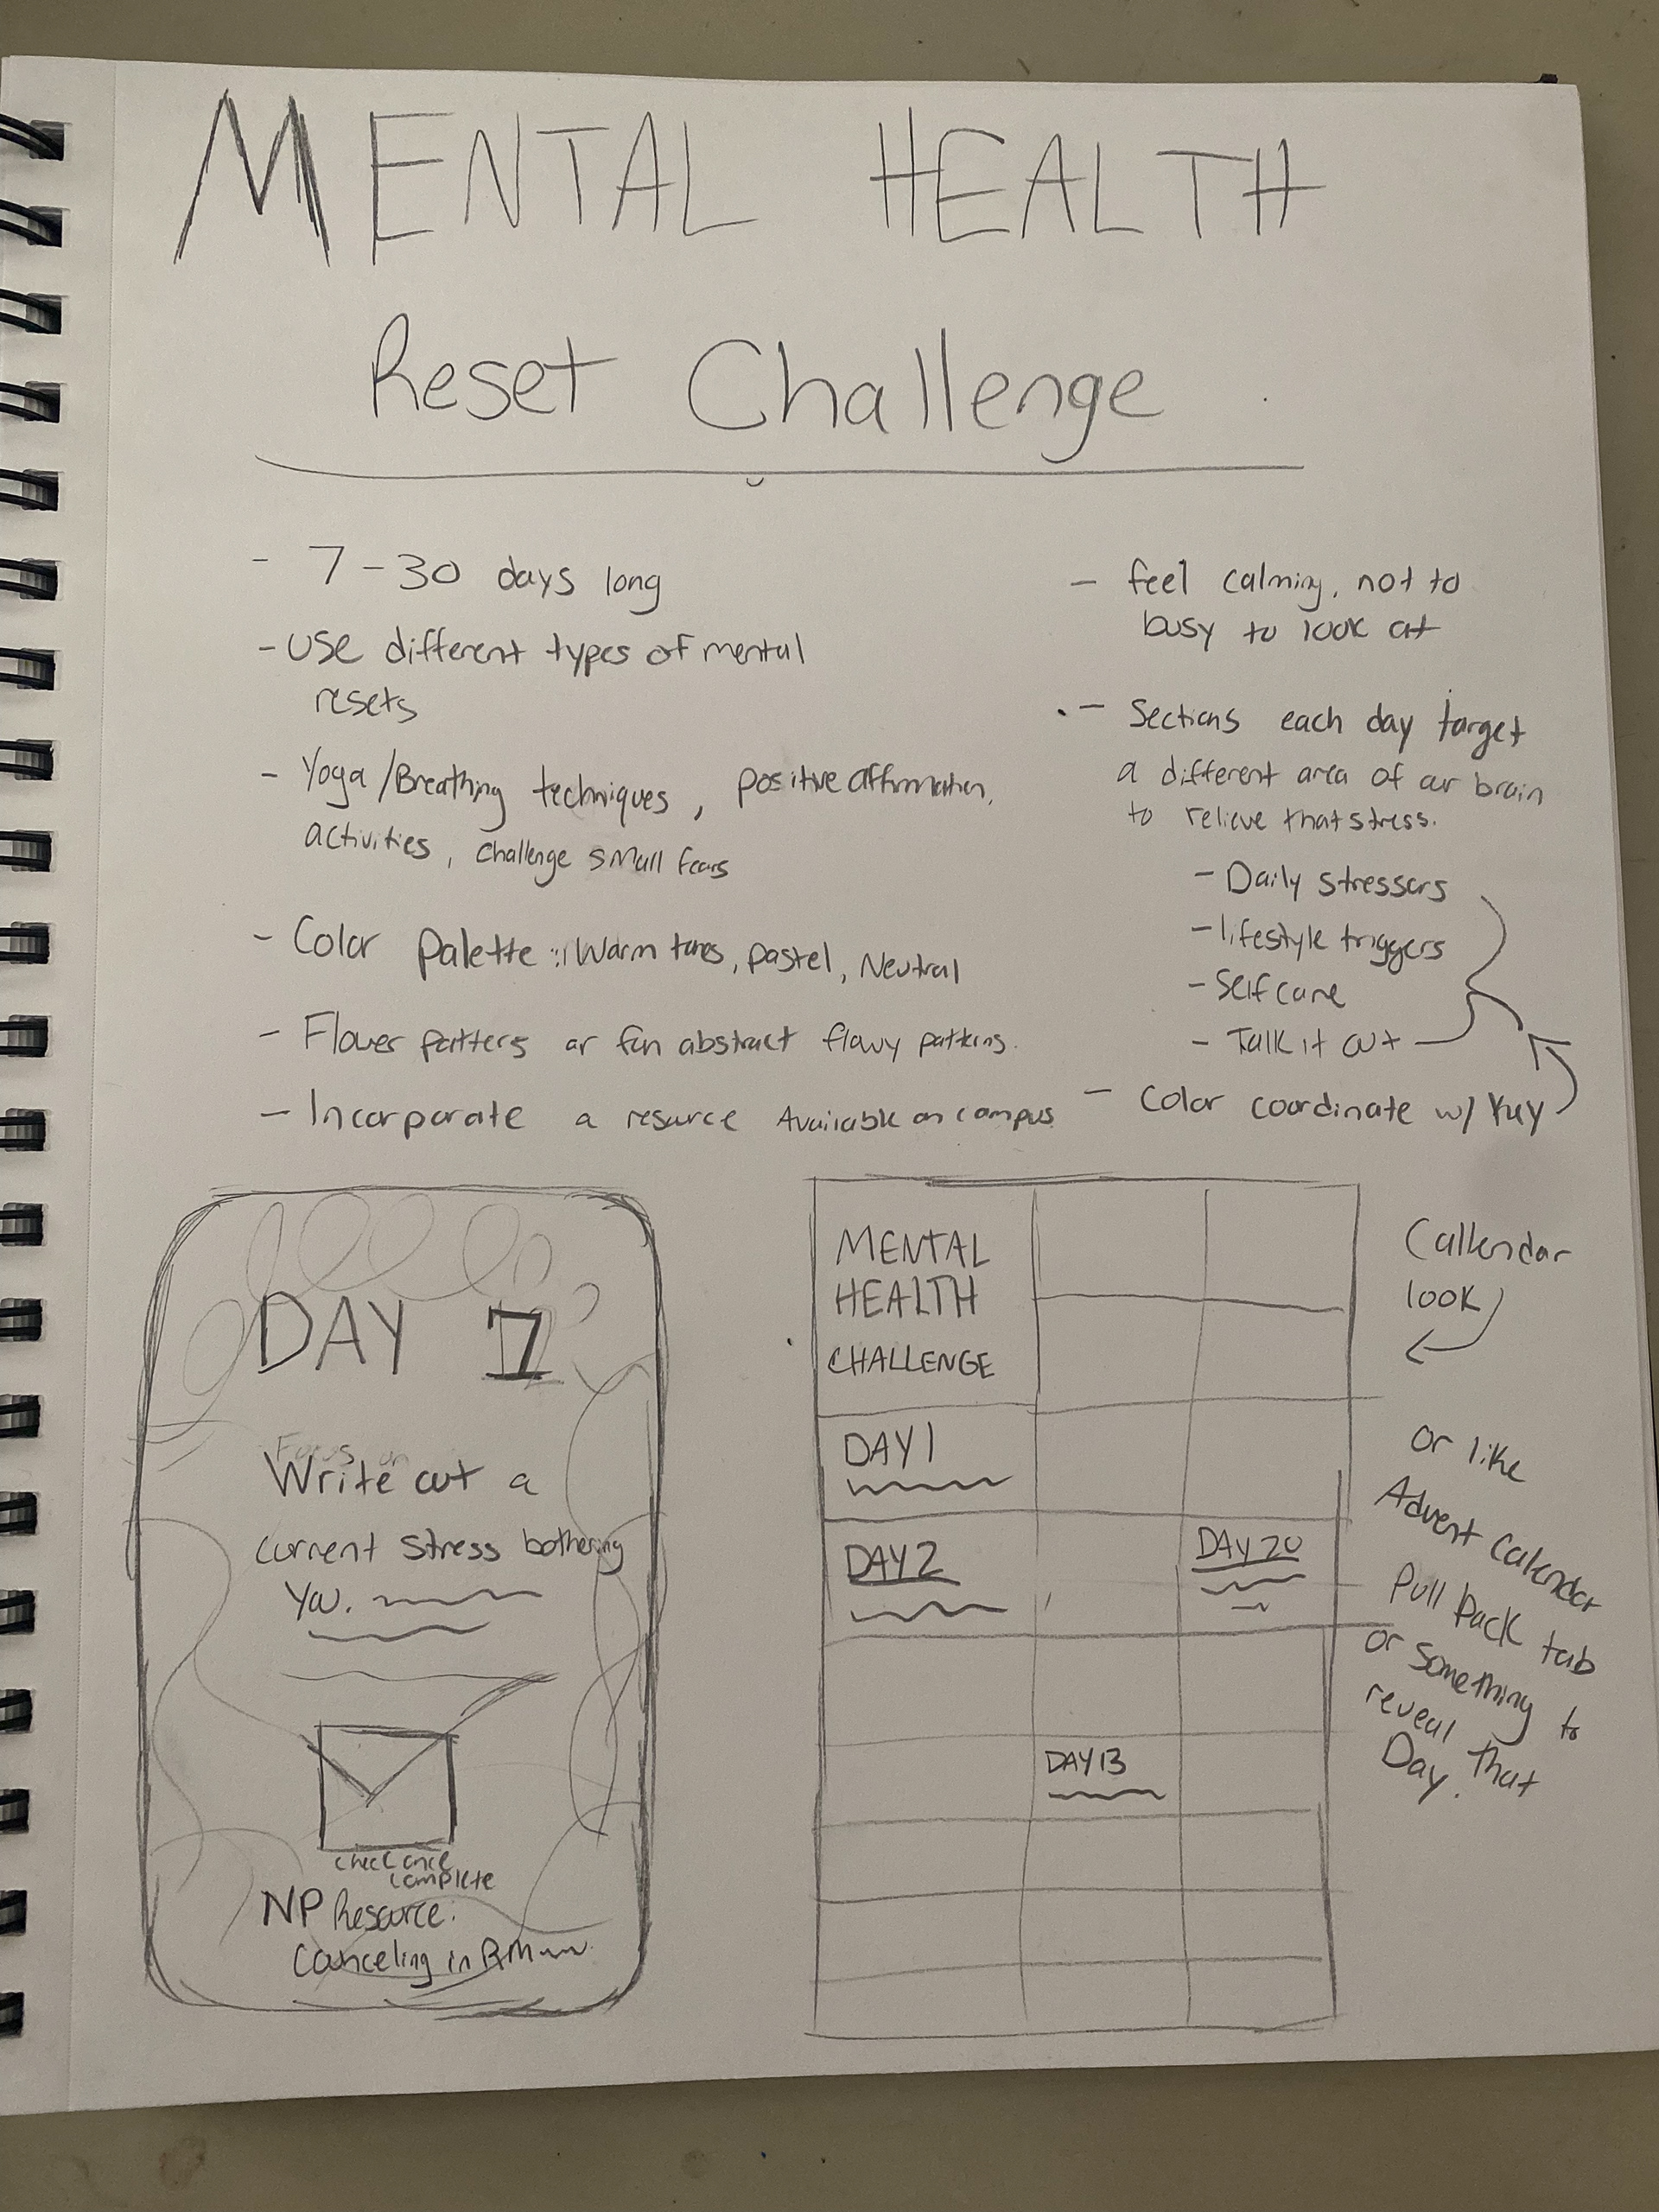 MENTAL HEALTH
Reset Challenge
- 7-30 days long
- Use different types of mental
resets
- Yoga/Breathing techniques, positive affirmation,
activities, challenge small fears
- Color palette: Warm tones, pastel, Neutral
- Flower patters or fun abstract flowy patterns.
- Incorporate a resource Available on campus
- feel calming, not to
busy to look at
- Sections each day target
a different area of our brain
to relieve that stress.
- Daily stressors
- lifestyle triggers
- Self care
- Talk it out
- Color coordinate w/ Key
DAY 1
Focus on
Write out a
current stress bothering
you.
check once
complete
NP Resource:
in RM
MENTAL
HEALTH
CHALLENGE
DAY 1
DAY 2
DAY 20
DAY 13
Callendar
look
or like
Advent Calendar
Pull back tab
or something to
reveal that
Day.